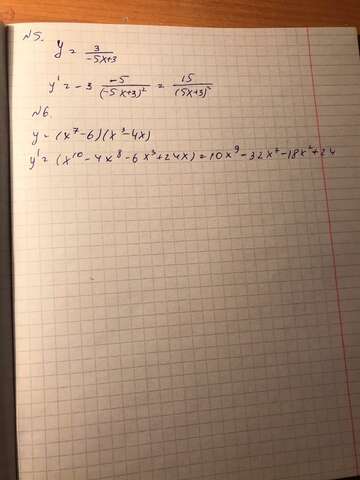 №5.
y = 3/(-5x+3)
y' = -3 (-5)/(-5x+3)² = 15/(5x+3)²
№6.
y = (x⁷-6)(x³-4x)
y' = (x¹⁰-4x⁸-6x³+24x) = 10x⁹-32x⁷-18x²+24